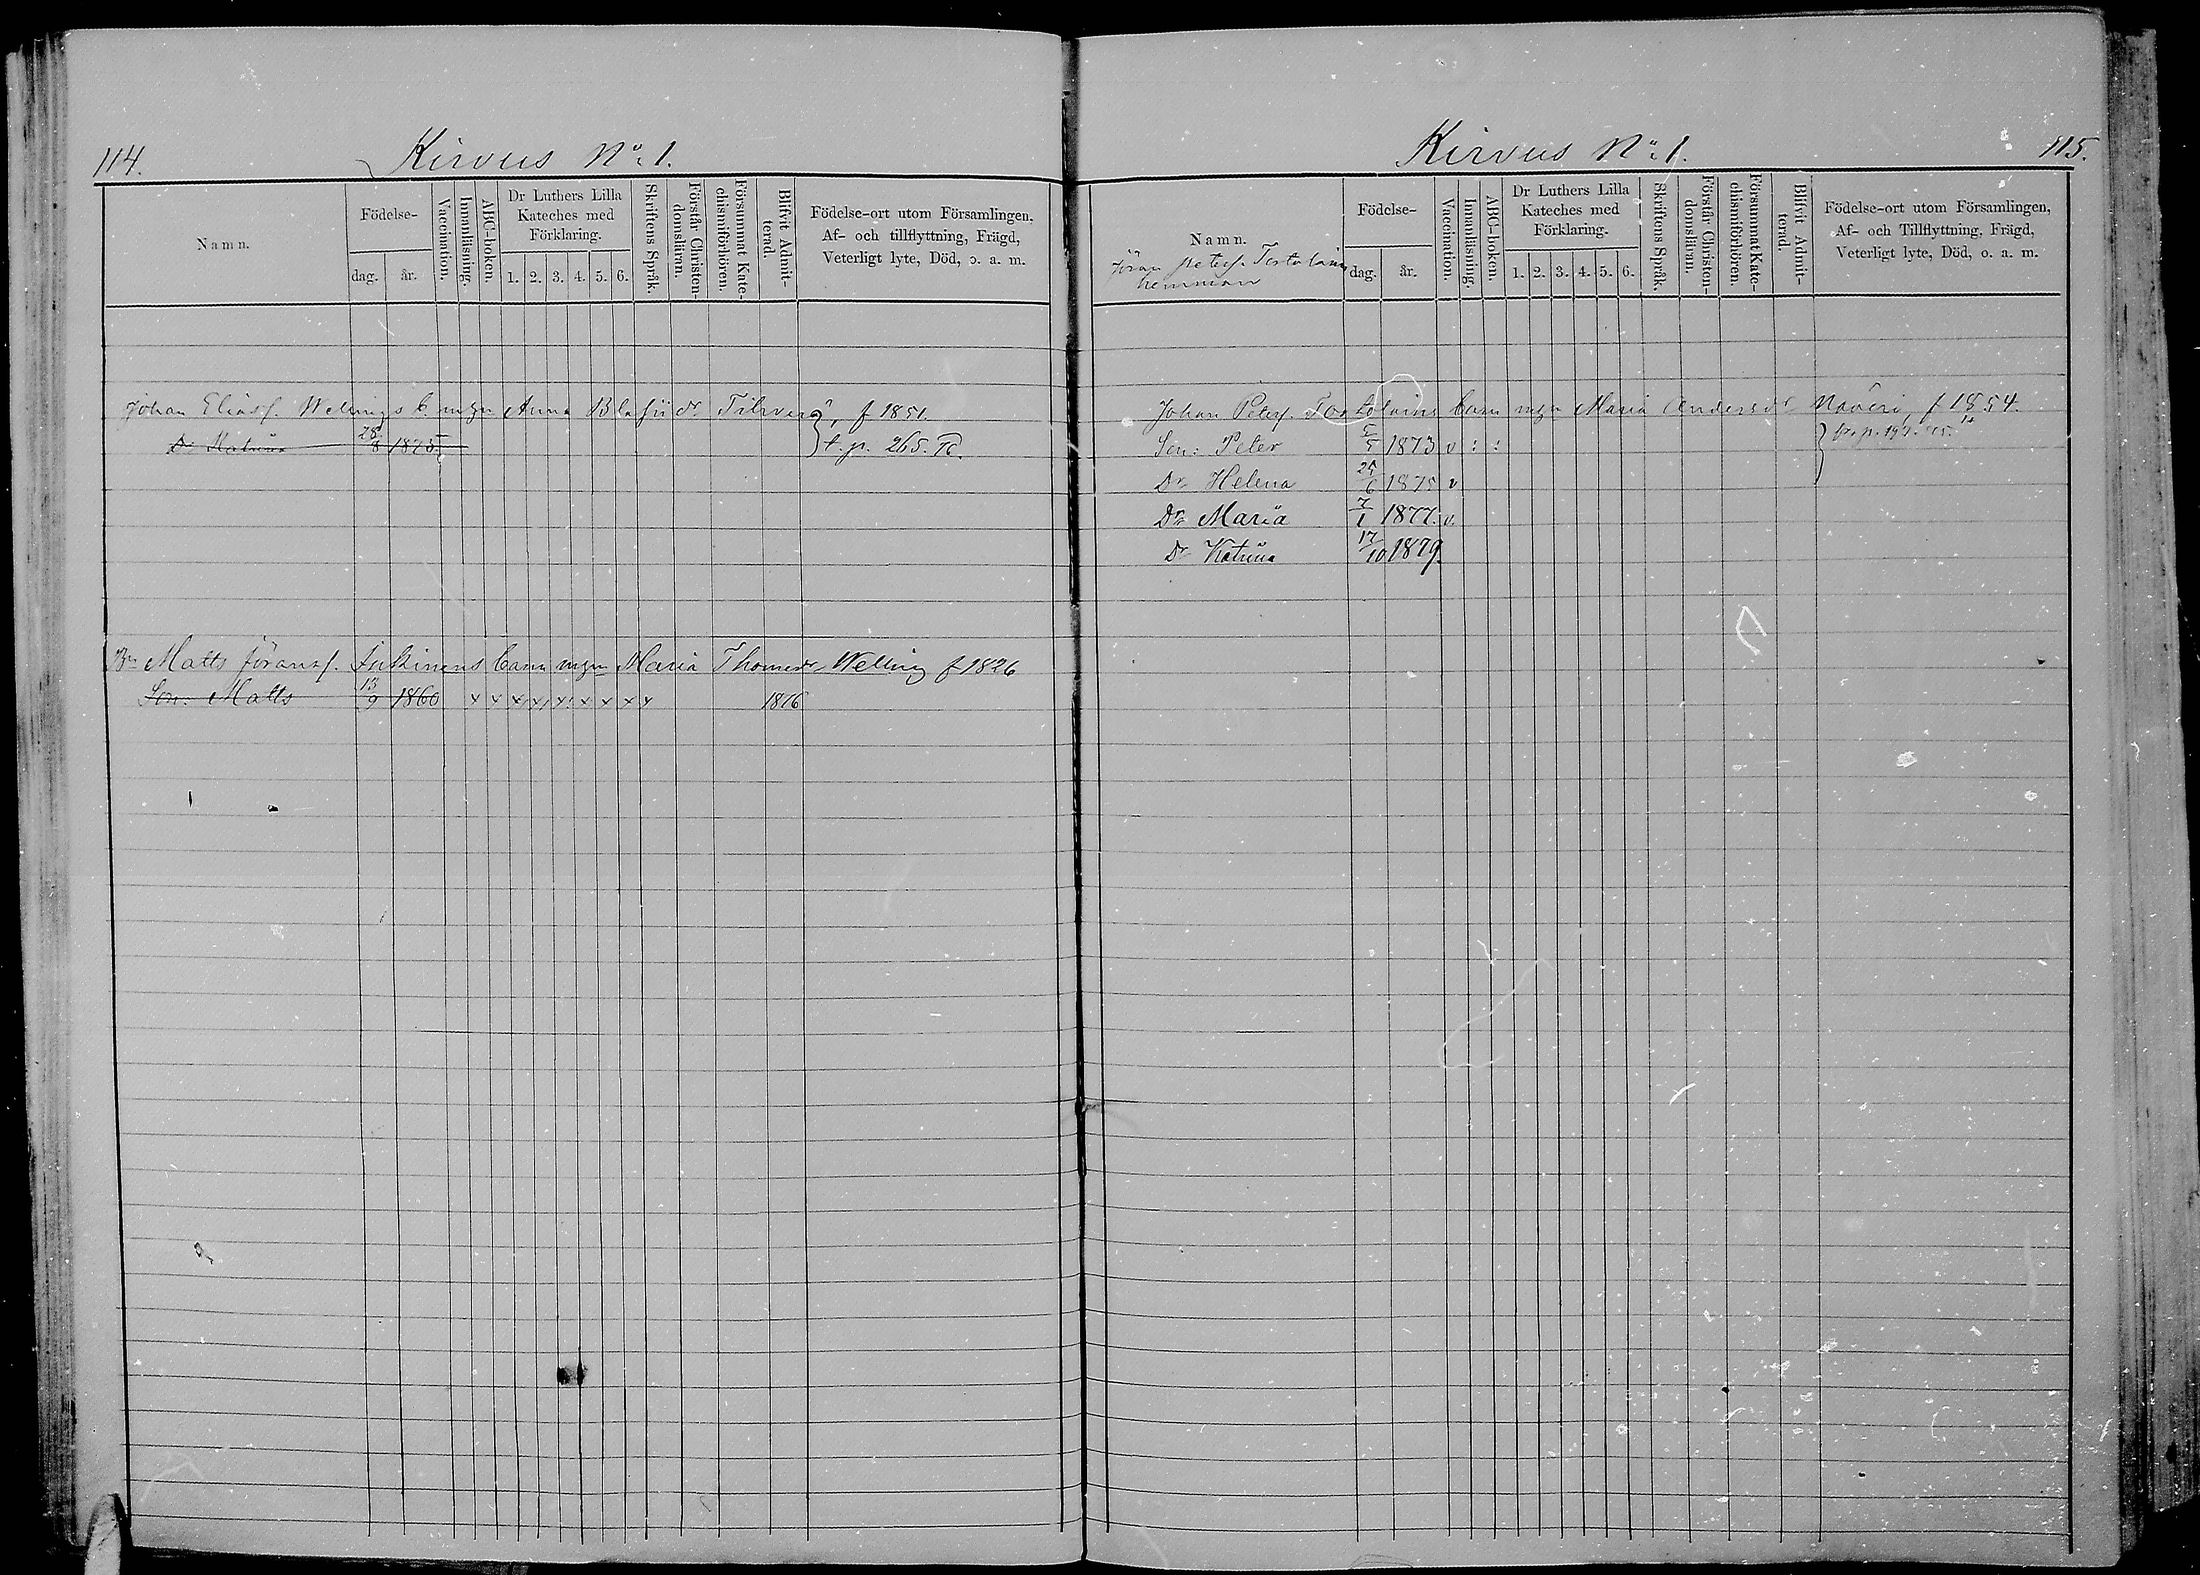 114.
Kirvus No: 1.
Namn.
Födelse-
dag.
år.
Vaccination.
Innanläsning.
ABC-boken.
Dr Luthers Lilla
Kateches med
Förklaring.
1. 2. 3. 4. 5. 6.
Skriftens Språk.
Förstår Christen-
domsläran.
Försummat Kate-
chismiförhören.
Blifvit Admit-
terad.
Födelse-ort utom Församlingen,
Af- och tillflyttning, Frägd,
Veterligt lyte, Död, o. a. m.
Johan Eliasf. Wellings b. mgn Anna Blasiidr f 1851.
Dr Katrina 28/8 1875 t. p. 265.
Matts Göransf. barn mgn Maria Thomasdr Welling f 1826
Son: Matts 13/9 1860 x x x x x x x x x 1876
Kirvus No: 1.
115.
Namn.
Göran Petesf. Tertolains
hemman
Födelse-
dag.
år.
Vaccination.
Innanläsning.
ABC-boken.
Dr Luthers Lilla
Kateches med
Förklaring.
1. 2. 3. 4. 5. 6.
Skriftens Språk.
Förstår Christen-
domsläran.
Försummat Kate-
chismiförhören.
Blifvit Admit-
terad.
Födelse-ort utom Församlingen,
Af- och Tillflyttning, Frägd,
Veterligt lyte, Död, o. a. m.
Johan Petesf. barn mgn Maria Andersdr f 1854.
Son: Peter 5/5 1873 v : :
Dr Helena 1875 v
Dr Maria 7/1 1877. v.
Dr Katrina 17/10 1879.